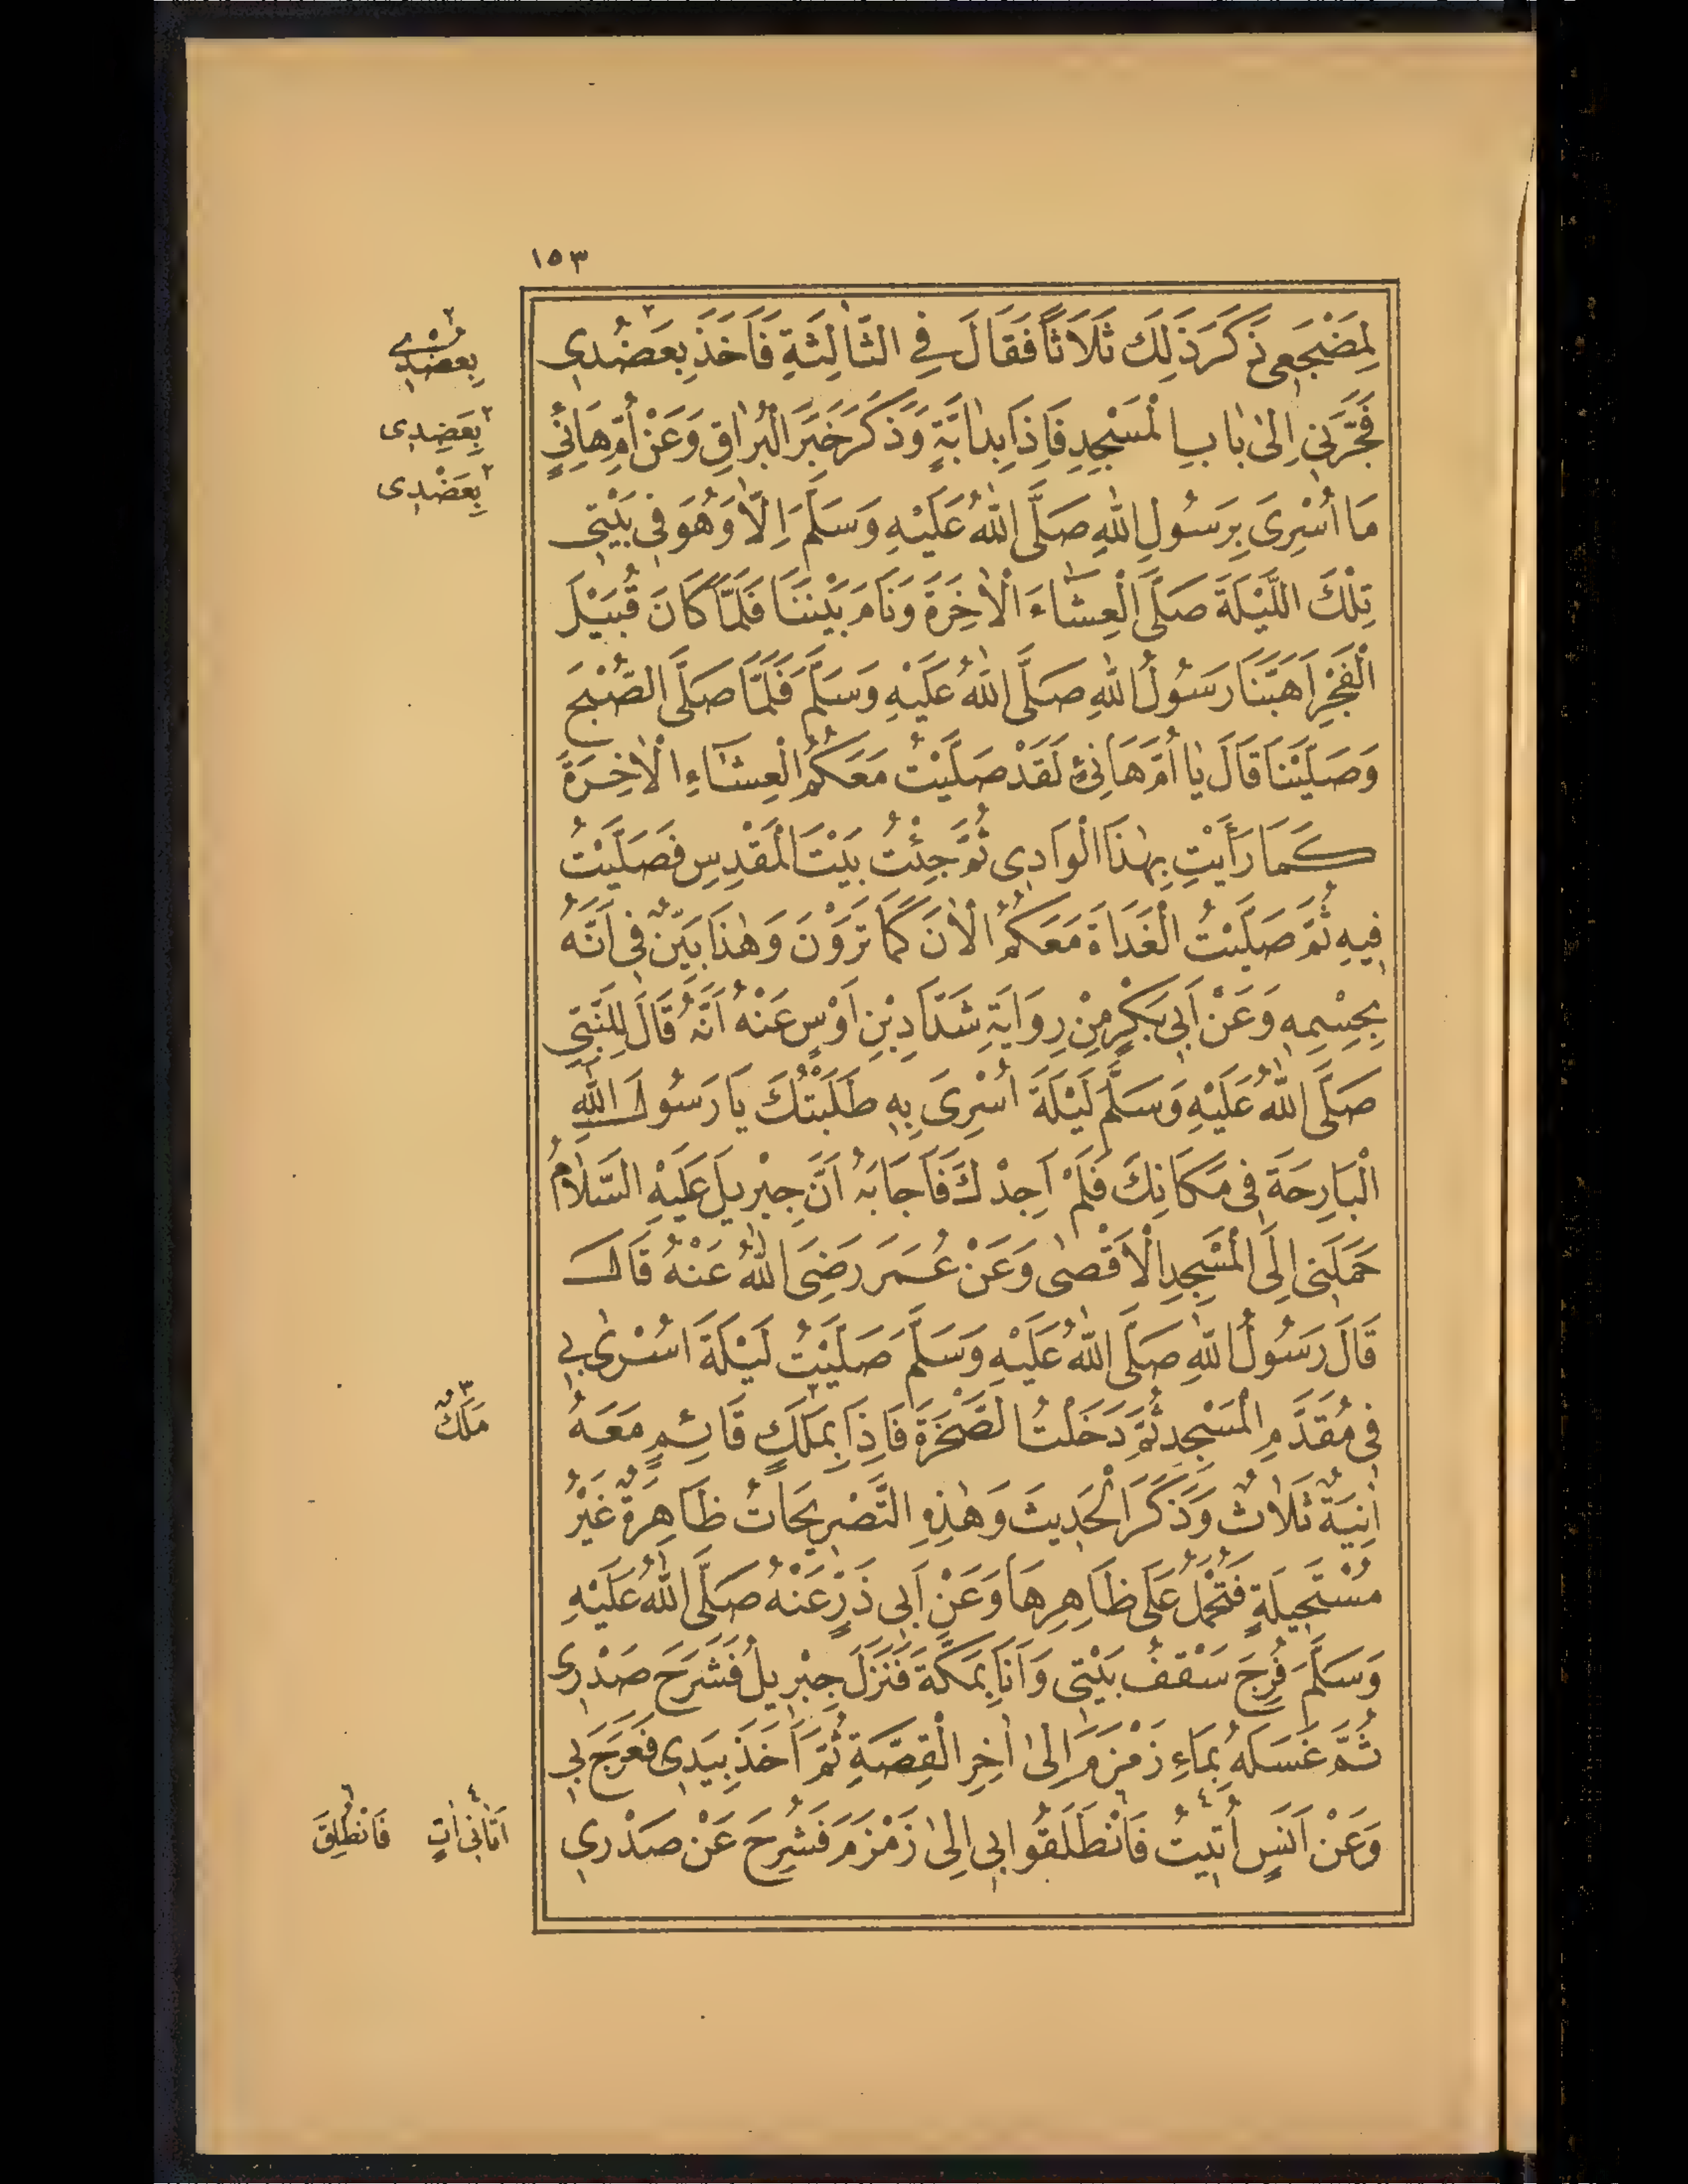 ١٥٣
لِمَضْجَعِى ذَكَرَ ذٰلِكَ ثَلَاثاً فَقَالَ فِي الثَّالِثَةِ فَاَخَذَ بِعَضُدِى
فَجَرَّنِى اِلىٰ بَابِ الْمَسْجِدِ فَاِذَا بِدَابَّةٍ وَذَكَرَ خَبَرَ الْبُرَاقِ وَعَنْ اُمِّ هَانِئٍ
مَا اُسْرِىَ بِرَسُولِ اللهِ صَلَّى اللهُ عَلَيْهِ وَسَلَّمَ اِلَّا وَهُوَ فِى بَيْتِى
تِلْكَ اللَّيْلَةَ صَلَّى الْعِشَاءَ الْاٰخِرَةَ وَنَامَ بَيْنَنَا فَلَمَّا كَانَ قُبَيْلَ
الْفَجْرِ اَهَبَّنَا رَسُولُ اللهِ صَلَّى اللهُ عَلَيْهِ وَسَلَّمَ فَلَمَّا صَلَّى الصُّبْحَ
وَصَلَّيْنَا قَالَ يَا اُمَّ هَانِئٍ لَقَدْ صَلَّيْتُ مَعَكُمُ الْعِشَاءِ الْاٰخِرَةَ
كَمَا رَأَيْتِ بِهٰذَا الْوَادِى ثُمَّ جِئْتُ بَيْتَ الْمَقْدِسِ فَصَلَّيْتُ
فِيهِ ثُمَّ صَلَّيْتُ الْغَدَاةَ مَعَكُمُ الْاٰنَ كَمَا تَرَوْنَ وَهٰذَا بَيِّنٌ فِى اَنَّهُ
بِجِسْمِهِ وَعَنْ اَبِى بَكْرٍ مِنْ رِوَايَةِ شَدَّادِ بْنِ اَوْسٍ عَنْهُ اَنَّهُ قَالَ لِلنَّبِىِّ
صَلَّى اللهُ عَلَيْهِ وَسَلَّمَ لَيْلَةَ اُسْرِىَ بِهِ طَلَبْتُكَ يَا رَسُولَ اللهِ
الْبَارِحَةَ فِى مَكَانِكَ فَلَمْ اَجِدْكَ فَاَجَابَهُ اَنَّ جِبْرِيلَ عَلَيْهِ السَّلَامُ
حَمَلَنِى اِلَى الْمَسْجِدِ الْاَقْصٰى وَعَنْ عُمَرَ رَضِىَ اللهُ عَنْهُ قَالَ
قَالَ رَسُولُ اللهِ صَلَّى اللهُ عَلَيْهِ وَسَلَّمَ صَلَّيْتُ لَيْلَةَ اُسْرِىَ بِى
فِى مُقَدَّمِ الْمَسْجِدِ ثُمَّ دَخَلْتُ الصَّخْرَةَ فَاِذَا بِمَلَكٍ قَائِمٍ مَعَهُ
اٰنِيَةٌ ثَلَاثٌ وَذَكَرَ الْحَدِيثَ وَهٰذِهِ التَّصْرِيحَاتُ ظَاهِرَةٌ غَيْرُ
مُسْتَحِيلَةٍ فَتُحْمَلُ عَلَى ظَاهِرِهَا وَعَنْ اَبِى ذَرٍّ عَنْهُ صَلَّى اللهُ عَلَيْهِ
وَسَلَّمَ فُرِجَ سَقْفُ بَيْتِى وَاَنَا بِمَكَّةَ فَنَزَلَ جِبْرِيلُ فَشَرَحَ صَدْرِى
ثُمَّ غَسَلَهُ بِمَاءِ زَمْزَمَ اِلىٰ اٰخِرِ الْقِصَّةِ ثُمَّ اَخَذَ بِيَدِى فَعَرَجَ بِى
وَعَنْ اَنَسٍ اُتِيتُ فَانْطَلَقُوا بِى اِلىٰ زَمْزَمَ فَشُرِحَ عَنْ صَدْرِى
٢ بِعَضُدَىَّ
٢ بِعَضِدِى
٢ بِعَضْدِى
٣ مَلَكٌ
٤ اَتَانِى اٰتٍ
٦ فَانْطُلِقَ